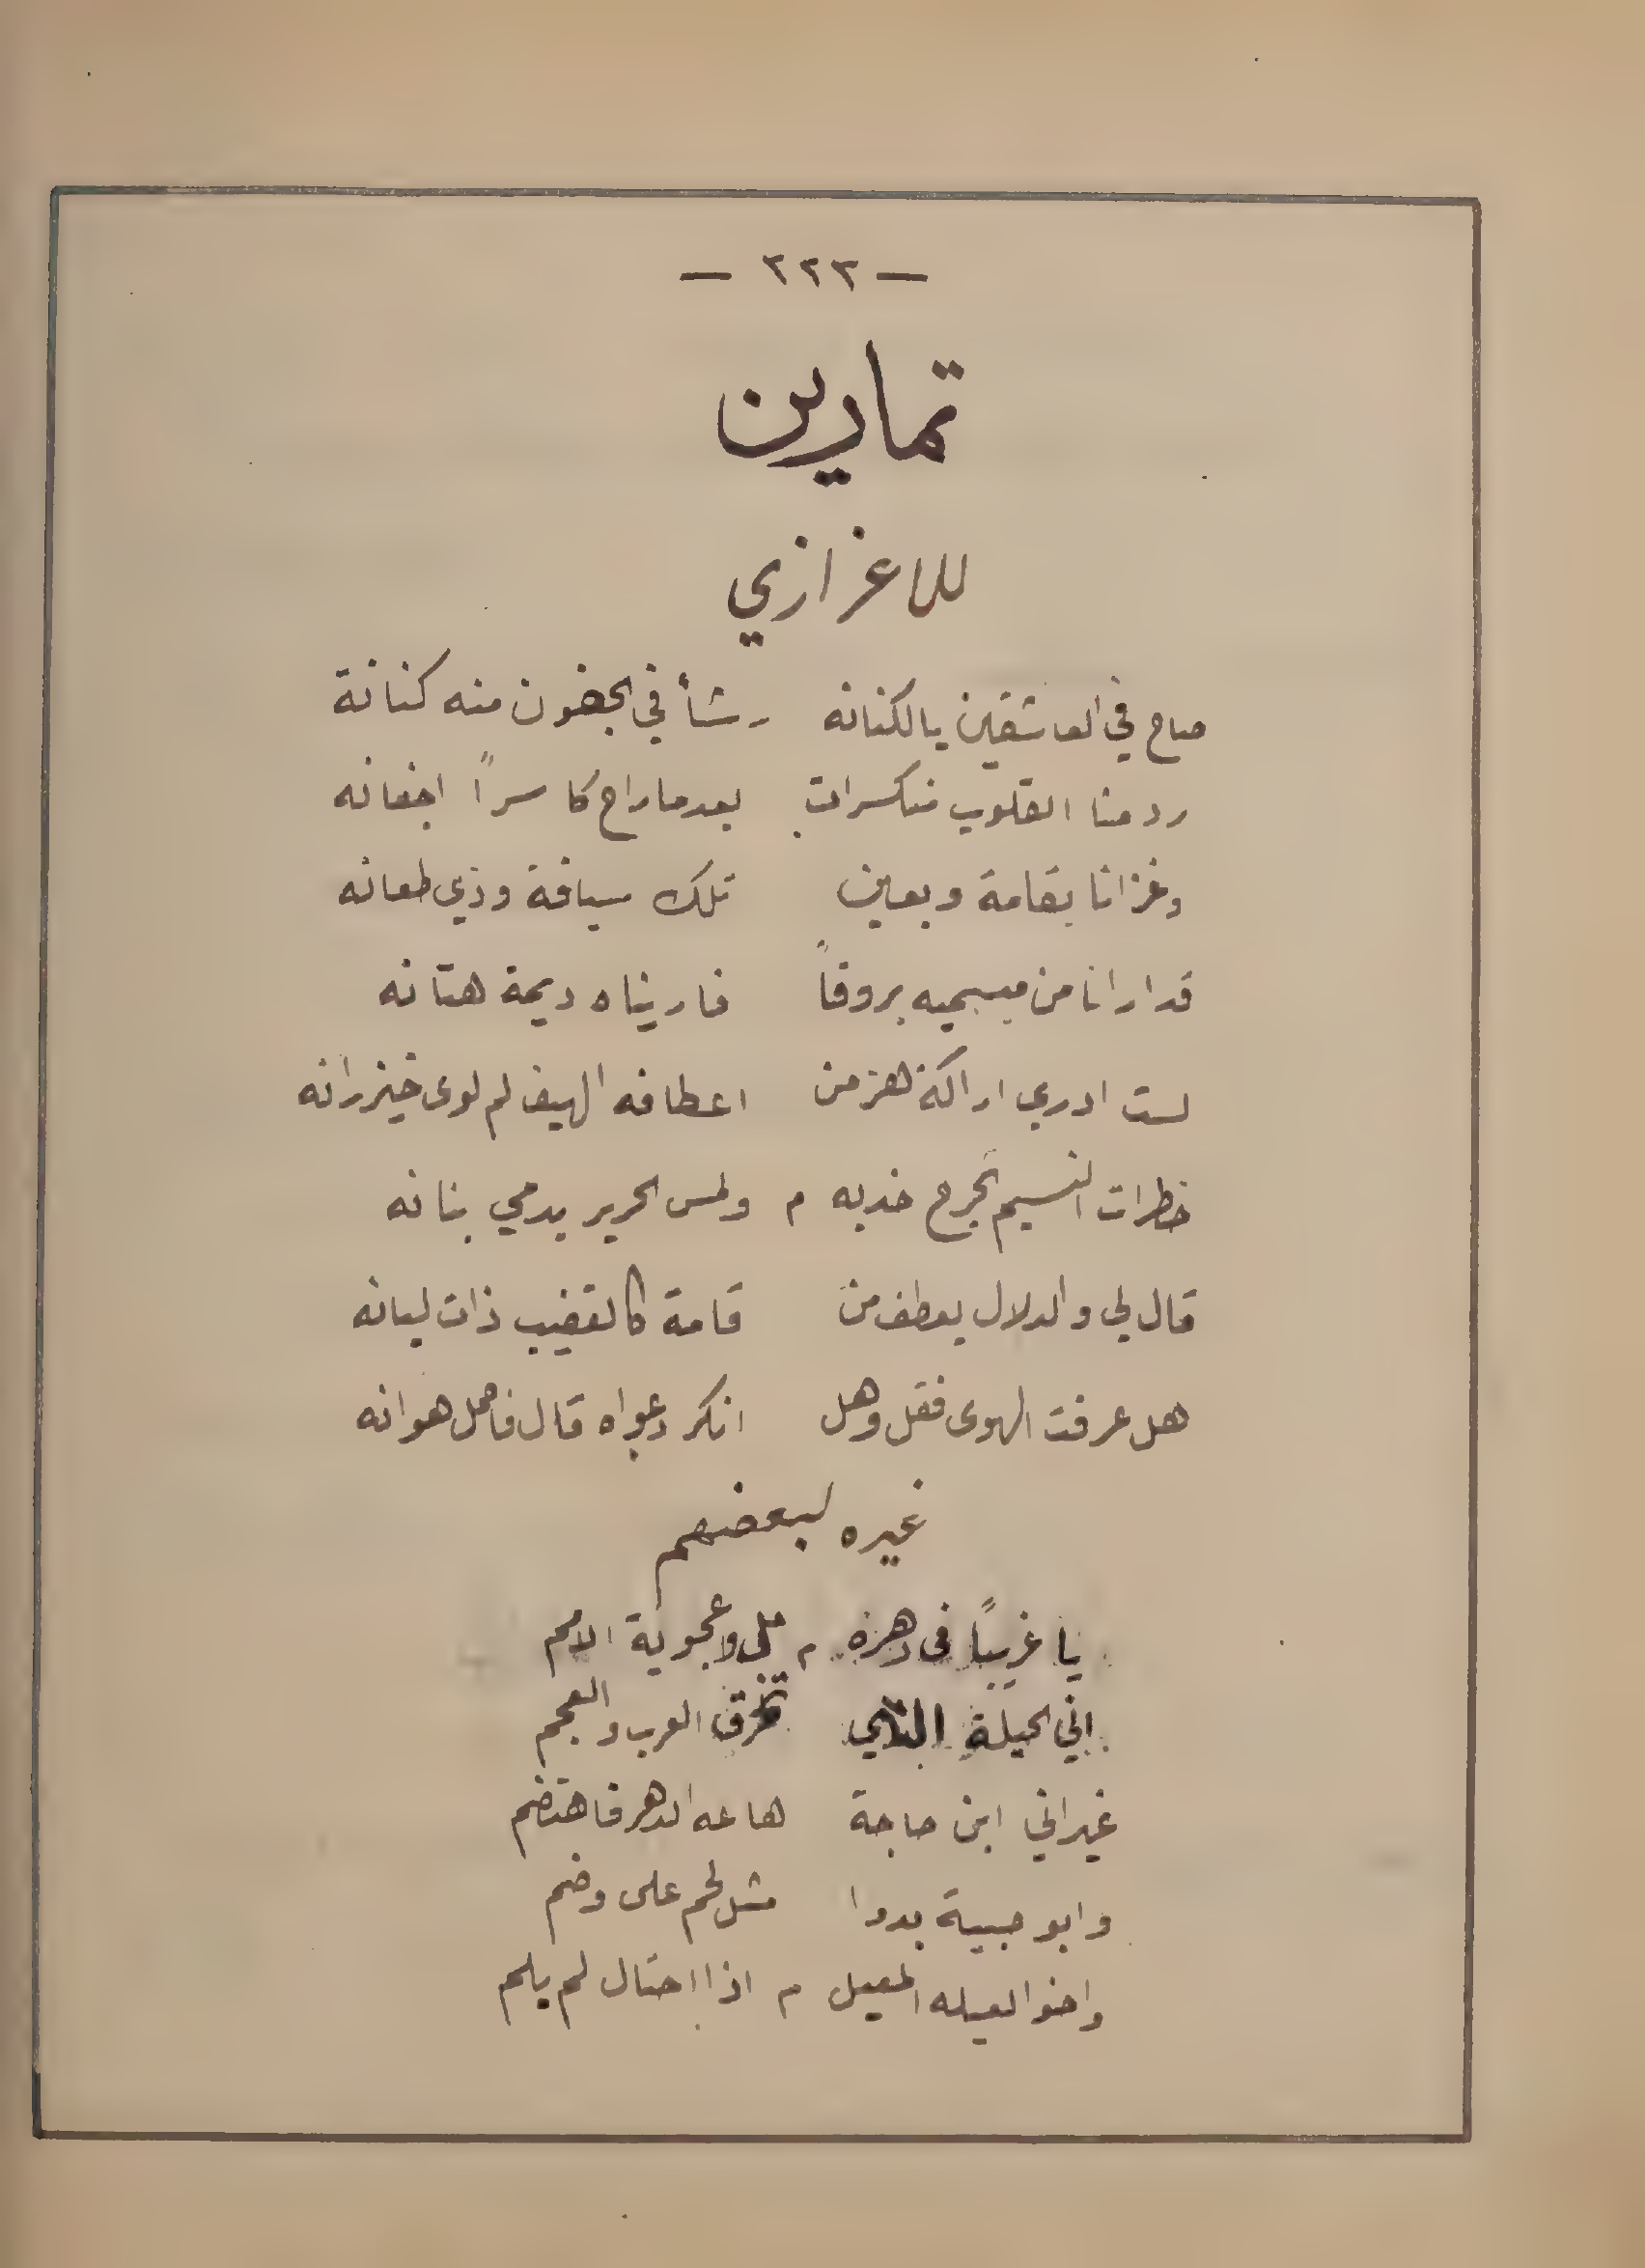 — ٢٢٣ —
تمارين
للاعزازي
صاح في العاشقين يالكنانه رشأ في الجفون منه كنانة
رد منا القلوب منكسرات بعد ما راح كا سراً اجفانه
وغزانا بقامة وبعين تلك سيافة وذي طعانه
قد ارانا من مبسميه بروقاً فاريناه ديمة هتانه
لست ادري اراكة هز من اعطافه الهيف لم لوى خيزرانه
خطرات النسيم تجرح خديه م ولمس الحرير يدمي بنانه
قال لي والدلال يعطف من قامة كالقضيب ذات ليانه
هل عرفت الهوى فقل وهل انكر دعواه قال فاحمل هوانه
غيره لبعضهم
يا غريباً في دهره م على واعجوبة الامم
اني الحيلة التي تخرق العرب والعجم
غير اني ابن حاجة هاعه الدهر فاهتضم
وابو صبية بدوا مثل لحم على وضم
واخو العيله المعيل م اذا احتال لم يلم